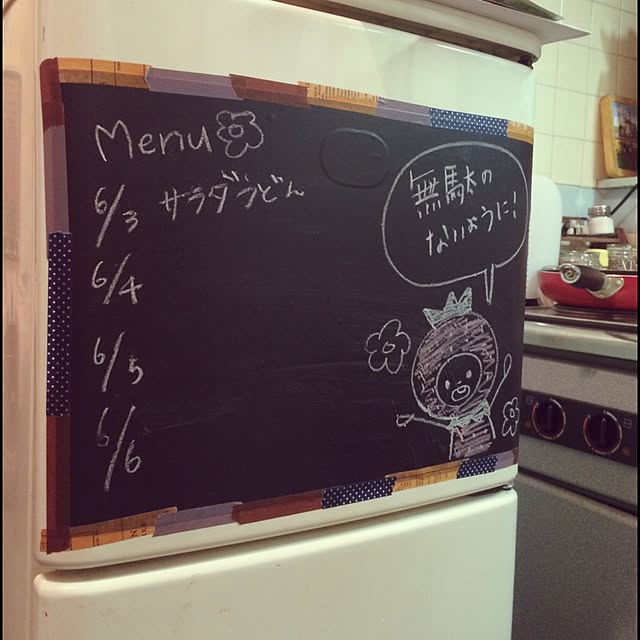 Menu
6/3 サラダうどん
6/4
6/5
6/6
無駄の
ないように!